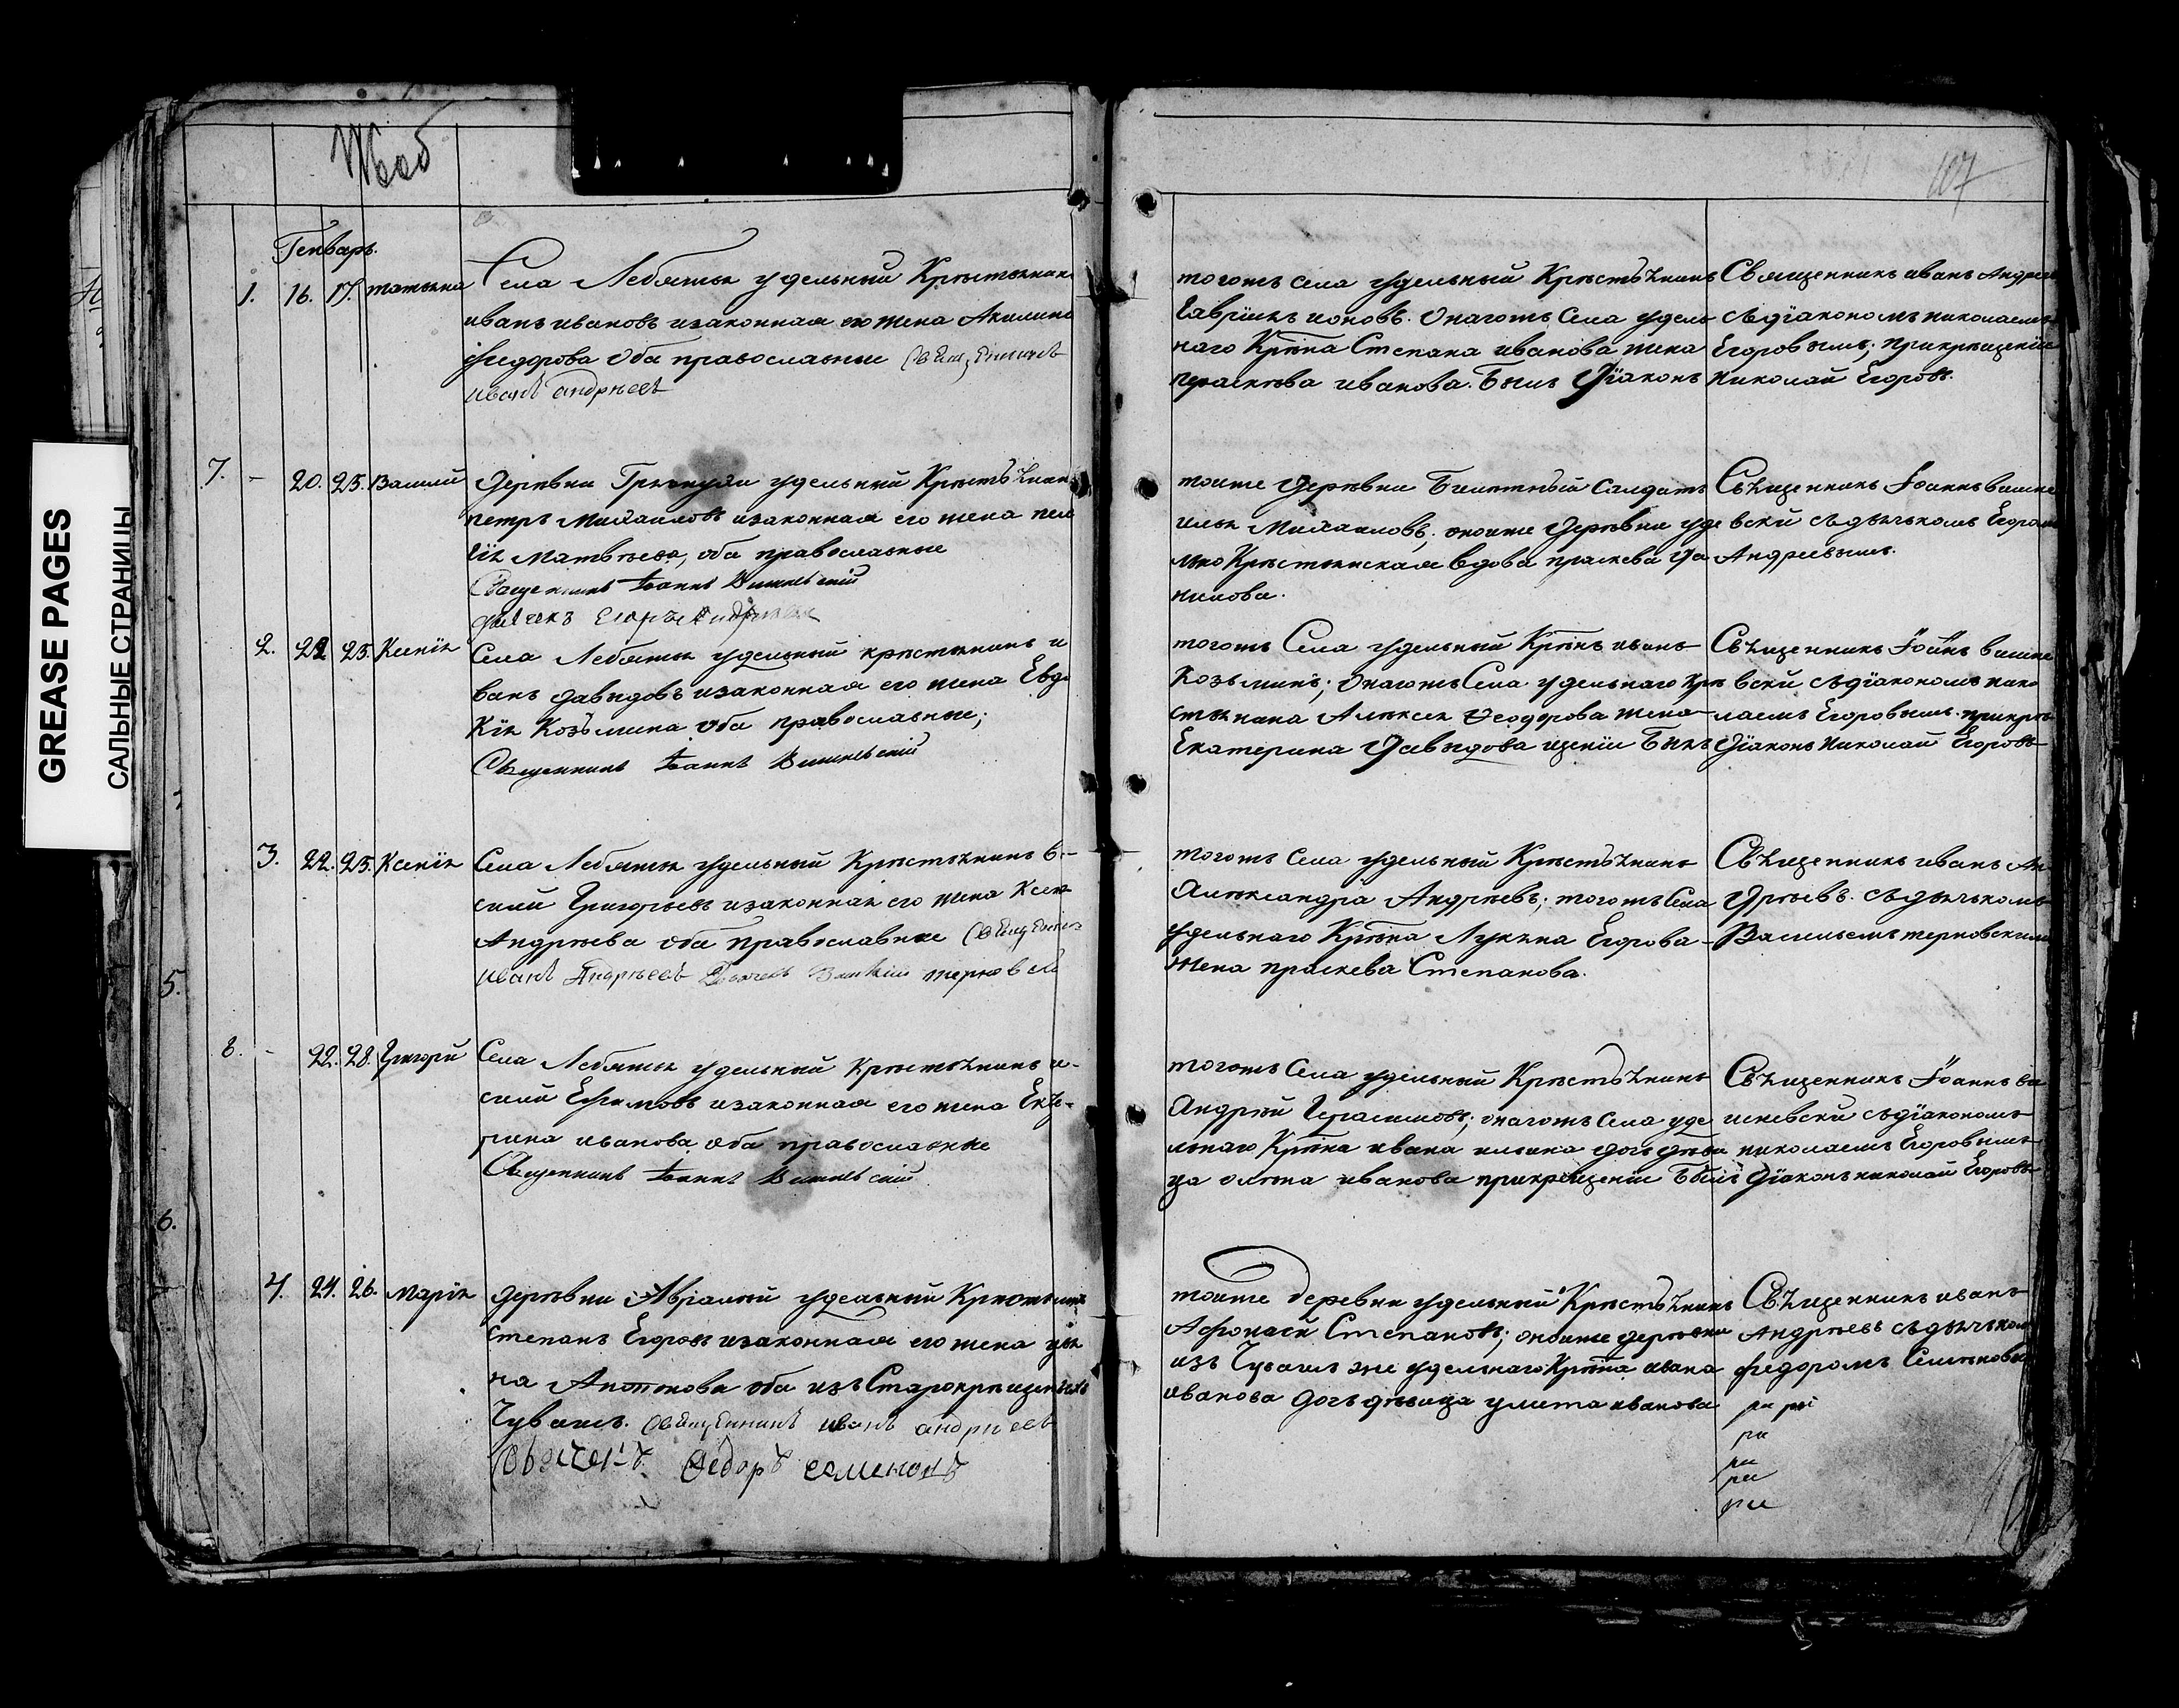 GREASE PAGES
САЛЬНЫЕ СТРАНИЦЫ
107
Генварь.
1. 16. 17. татьяна
Села Лебяжья удельный Крестьянинъ
иванъ ивановъ изаконная его жена Акилина
федорова оба православные Священникъ
иванъ андреевъ
тогожъ села удельный Крестьянинъ
Гавріилъ ионовъ. Онагожъ Села удель
наго Кр҃на Степана иванова жена
праскѣва иванова. Былъ Діаконъ
Священникъ иванъ Андреевъ
съ діакономъ николаемъ
Егоровымъ; прикрещеніи
николай Егоровъ.
7. - 20. 25. Василий
Деревни удельный Крестьянинъ
петръ Михаиловъ изаконная его жена пела
гія Матвѣева, оба православные
Священникъ Іоаннъ Вишневскій
дьячекъ Егоръ Андреевъ
тоиже Деревни Билетный Салдатъ
илья Михаиловъ; оноиже Деревни уде
льно Крестьянская вдова праскева Да
нилова.
Священникъ Іоаннъ вишне
вски съ дьячькомъ Егоромъ
Андреевымъ.
2. 22 23. Ксенія
Села Лебяжья удельный крестьянинъ и
ванъ давыдовъ изаконная его жена Евдо
кія Козьмина оба православные;
Священникъ Іоаннъ Вишневскій
тогожъ Села удельный Кр҃нъ иванъ
Козьминъ; Онагожъ Села удельнаго кре
стьянина Алексея Феодорова жена
Екатерина Давыдова щеніи Былъ
Священникъ Іоаннъ вишне
вски съ діакономъ нико
лаемъ Егоровымъ. прикре
Діаконъ Николай Егоровъ
3. 22. 23. Ксенія
Села Лебяжья удельный Крестьянинъ ва-
силий Григорьевъ изаконная его жена Ксенія
Андреева оба православные Священникъ
иванъ Андреевъ терновск
тогожъ Села удельный Крестьянинъ
Александра Андреевъ; тогожъ Села
удельнаго Кр҃на Лукьяна Егорова
Жена праскева Степанова.
Священникъ иванъ Ан
дреевъ. съ дьячькомъ
Васильемъ терновскимъ
5.
8. - 22. 28. Григори
Села Лебяжья удельный Крестьянинъ
Ефимовъ изаконная его жена Екте-
рина иванова. оба православные
Священникъ Іоаннъ Вишневскій
тогожъ Села удельный Крестьянинъ
Андрей Герасимовъ; онагожъ Села уде
льнаго Кр҃на ивана ильина дочь деви
ца олена иванова прикрещеніи Былъ
Священникъ Іоаннъ ви
шневски съ діакономъ
николаемъ Егоровымъ
Діаконъ николай Егоровъ
6.
4. 24. 26. Марія
деревни удельный Крестьянинъ
степанъ Егоровъ изаконная его жена
Антонова оба изъ Старокрещеныхъ
Чувашъ. Священникъ иванъ андреевъ
дьячекъ Федоръ семеновъ
тоиже деревни удельный Крестьянинъ
Афонасей Степановъ; оноиже деревни
изъ Чувашъ же удельнаго Кр҃на ивана
иванова дочь девица улита иванова
Священникъ иванъ
Андреевъ съ дьячькомъ
федоромъ Семеновы
ри
ри
ри
ри
ри